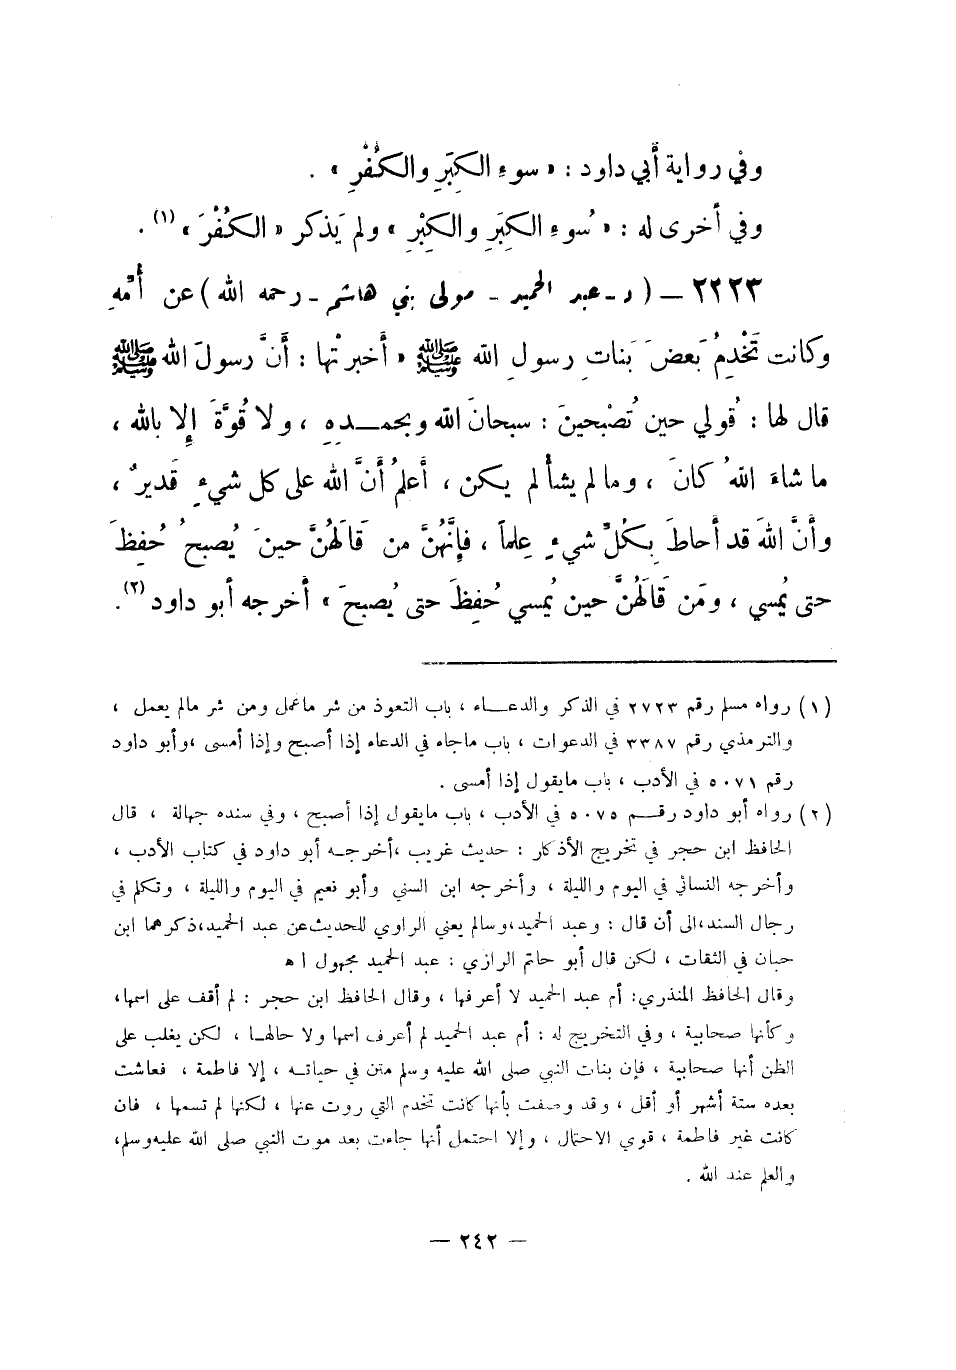 وفي رواية أبي داود : « سوءِ الكِبَرِ والكُفْرِ » .
وفي أخرى له : « سُوءِ الكِبَرِ والكِبْرِ » ولم يَذكر « الكُفْرَ » (١) .
٢٢٢٣ – ( د - عبد الحميد - مولى بني هاشم - رحمه الله ) عن أُمِّهِ
وكانت تَخْدِمُ بَعضَ بَناتِ رسولِ الله ﷺ « أخبرتْها : أنَّ رسولَ الله ﷺ
قال لها : قُولي حين تُصْبحينَ : سبحانَ الله وبحمـــدِهِ ، ولا قُوَّةَ إِلا بالله ،
ما شاءَ اللهُ كانَ ، وما لم يشأ لم يكن ، أَعلمُ أنَّ الله على كل شيءٍ قَديرٌ ،
وأنَّ اللهَ قد أحاطَ بِكُلِّ شيءٍ عِلماً ، فإنَّهُنَّ من قَالَهُنَّ حينَ يُصبحُ حُفِظَ
حتى يُمسي ، ومَن قَالَهُنَّ حين يُمسي حُفِظَ حتى يُصبحَ » أخرجه أبو داود (٢) .
(١) رواه مسلم رقم ٢٧٢٣ في الذكر والدعـــاء ، باب التعوذ من شر ماعمل ومن شر مالم يعمل ،
والترمذي رقم ٣٣٨٧ في الدعوات ، باب ماجاء في الدعاء إذا أصبح وإذا أمسى ،وأبو داود
رقم ٥٠٧١ في الأدب ، باب مايقول إذا أمسى .
(٢) رواه أبو داود رقـــم ٥٠٧٥ في الأدب ، باب مايقول إذا أصبح ، وفي سنده جهالة ، قال
الحافظ ابن حجر في تخريج الأذكار : حديث غريب ،أخرجـه أبو داود في كتاب الأدب ،
وأخرجه النسائي في اليوم والليلة ، وأخرجه ابن السني وأبو نعيم في اليوم والليلة ، وتكلم في
رجال السند،الى أن قال : وعبد الحميد،وسالم يعني الراوي للحديث عن عبد الحميد،ذكرهما ابن
حبان في الثقات ، لكن قال أبو حاتم الرازي : عبد الحميد مجهول ا ه
وقال الحافظ المنذري: أم عبد الحميد لا أعرفها ، وقال الحافظ ابن حجر : لم أقف على اسمها،
وكأنها صحابية ، وفي التخريج له : أم عبد الحميد لم أعرف اسمها ولا حالهـا ، لكن يغلب على
الظن أنها صحابية ، فإن بنات النبي صلى الله عليه وسلم متن في حياتـه ، إلا فاطمة ، فعاشت
بعده ستة أشهر أو أقل ، وقد وصفت بأنها كانت تخدم التي روت عنها ، لكنها لم تسمها ، فان
كانت غير فاطمة ، قوي الاحتمال ، وإلا احتمل أنها جاءت بعد موت النبي صلى الله عليه وسلم،
والعلم عند الله .
— ٢٤٢ —